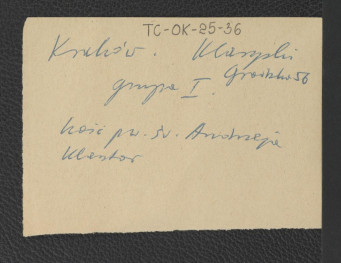 TC-OK-25-36
Kraków. Klaryski
Grodzka 56
grupa I.
kość pw. św. Andrzeja
Klasztor